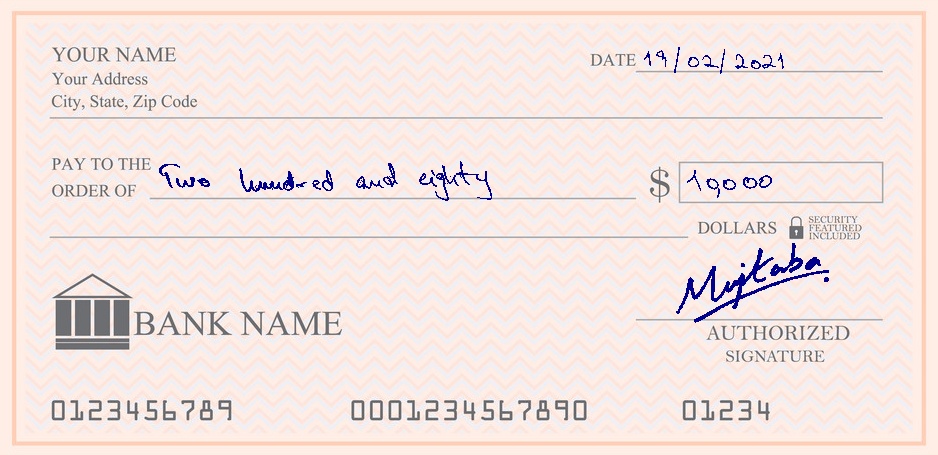 YOUR NAME
Your Address
City, State, Zip Code
DATE 19/02/2021
PAY TO THE
ORDER OF Two hundred and eighty $ 10,000
DOLLARS SECURITY FEATURED INCLUDED
Mujtaba
BANK NAME
AUTHORIZED
SIGNATURE
0123456789 0001234567890 01234